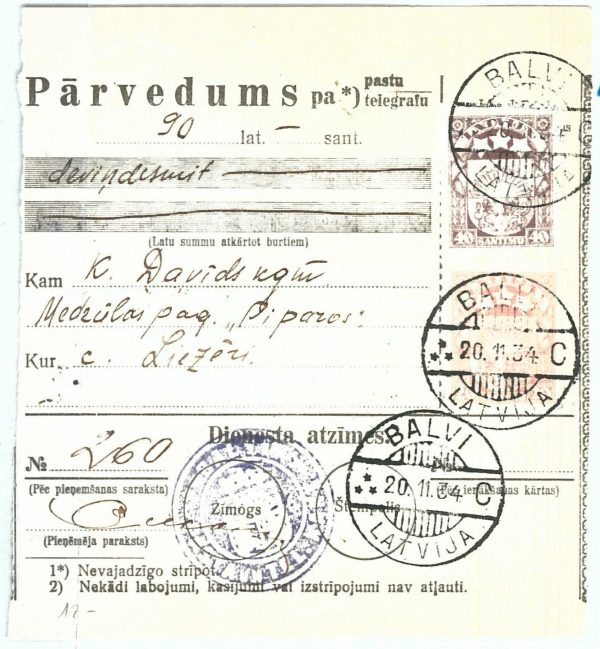 Pārvedums pa*) pastu telegrafu
90 lat. – sant.
deviņdesmit
(Latu summu atkārtot burtiem)
Kam K. Davids kgm
Medzūlas pag. „Piparos”
Kur. c. Liezēri.
Dienesta atzīmes.
№ 260
(Pēc pieņemšanas saraksta)
(Pēc ienākšanas kārtas)
Zīmogs
(Pieņēmēja paraksts)
1*) Nevajadzīgo strīpot.
2) Nekādi labojumi, kasījumi vai izstrīpojumi nav atļauti.
12-
BALVI
LATVIJA
40 SANTIMU 40
BALVI
20.11.34 C
LATVIJA
BALVI
20.11.34 C
LATVIJA